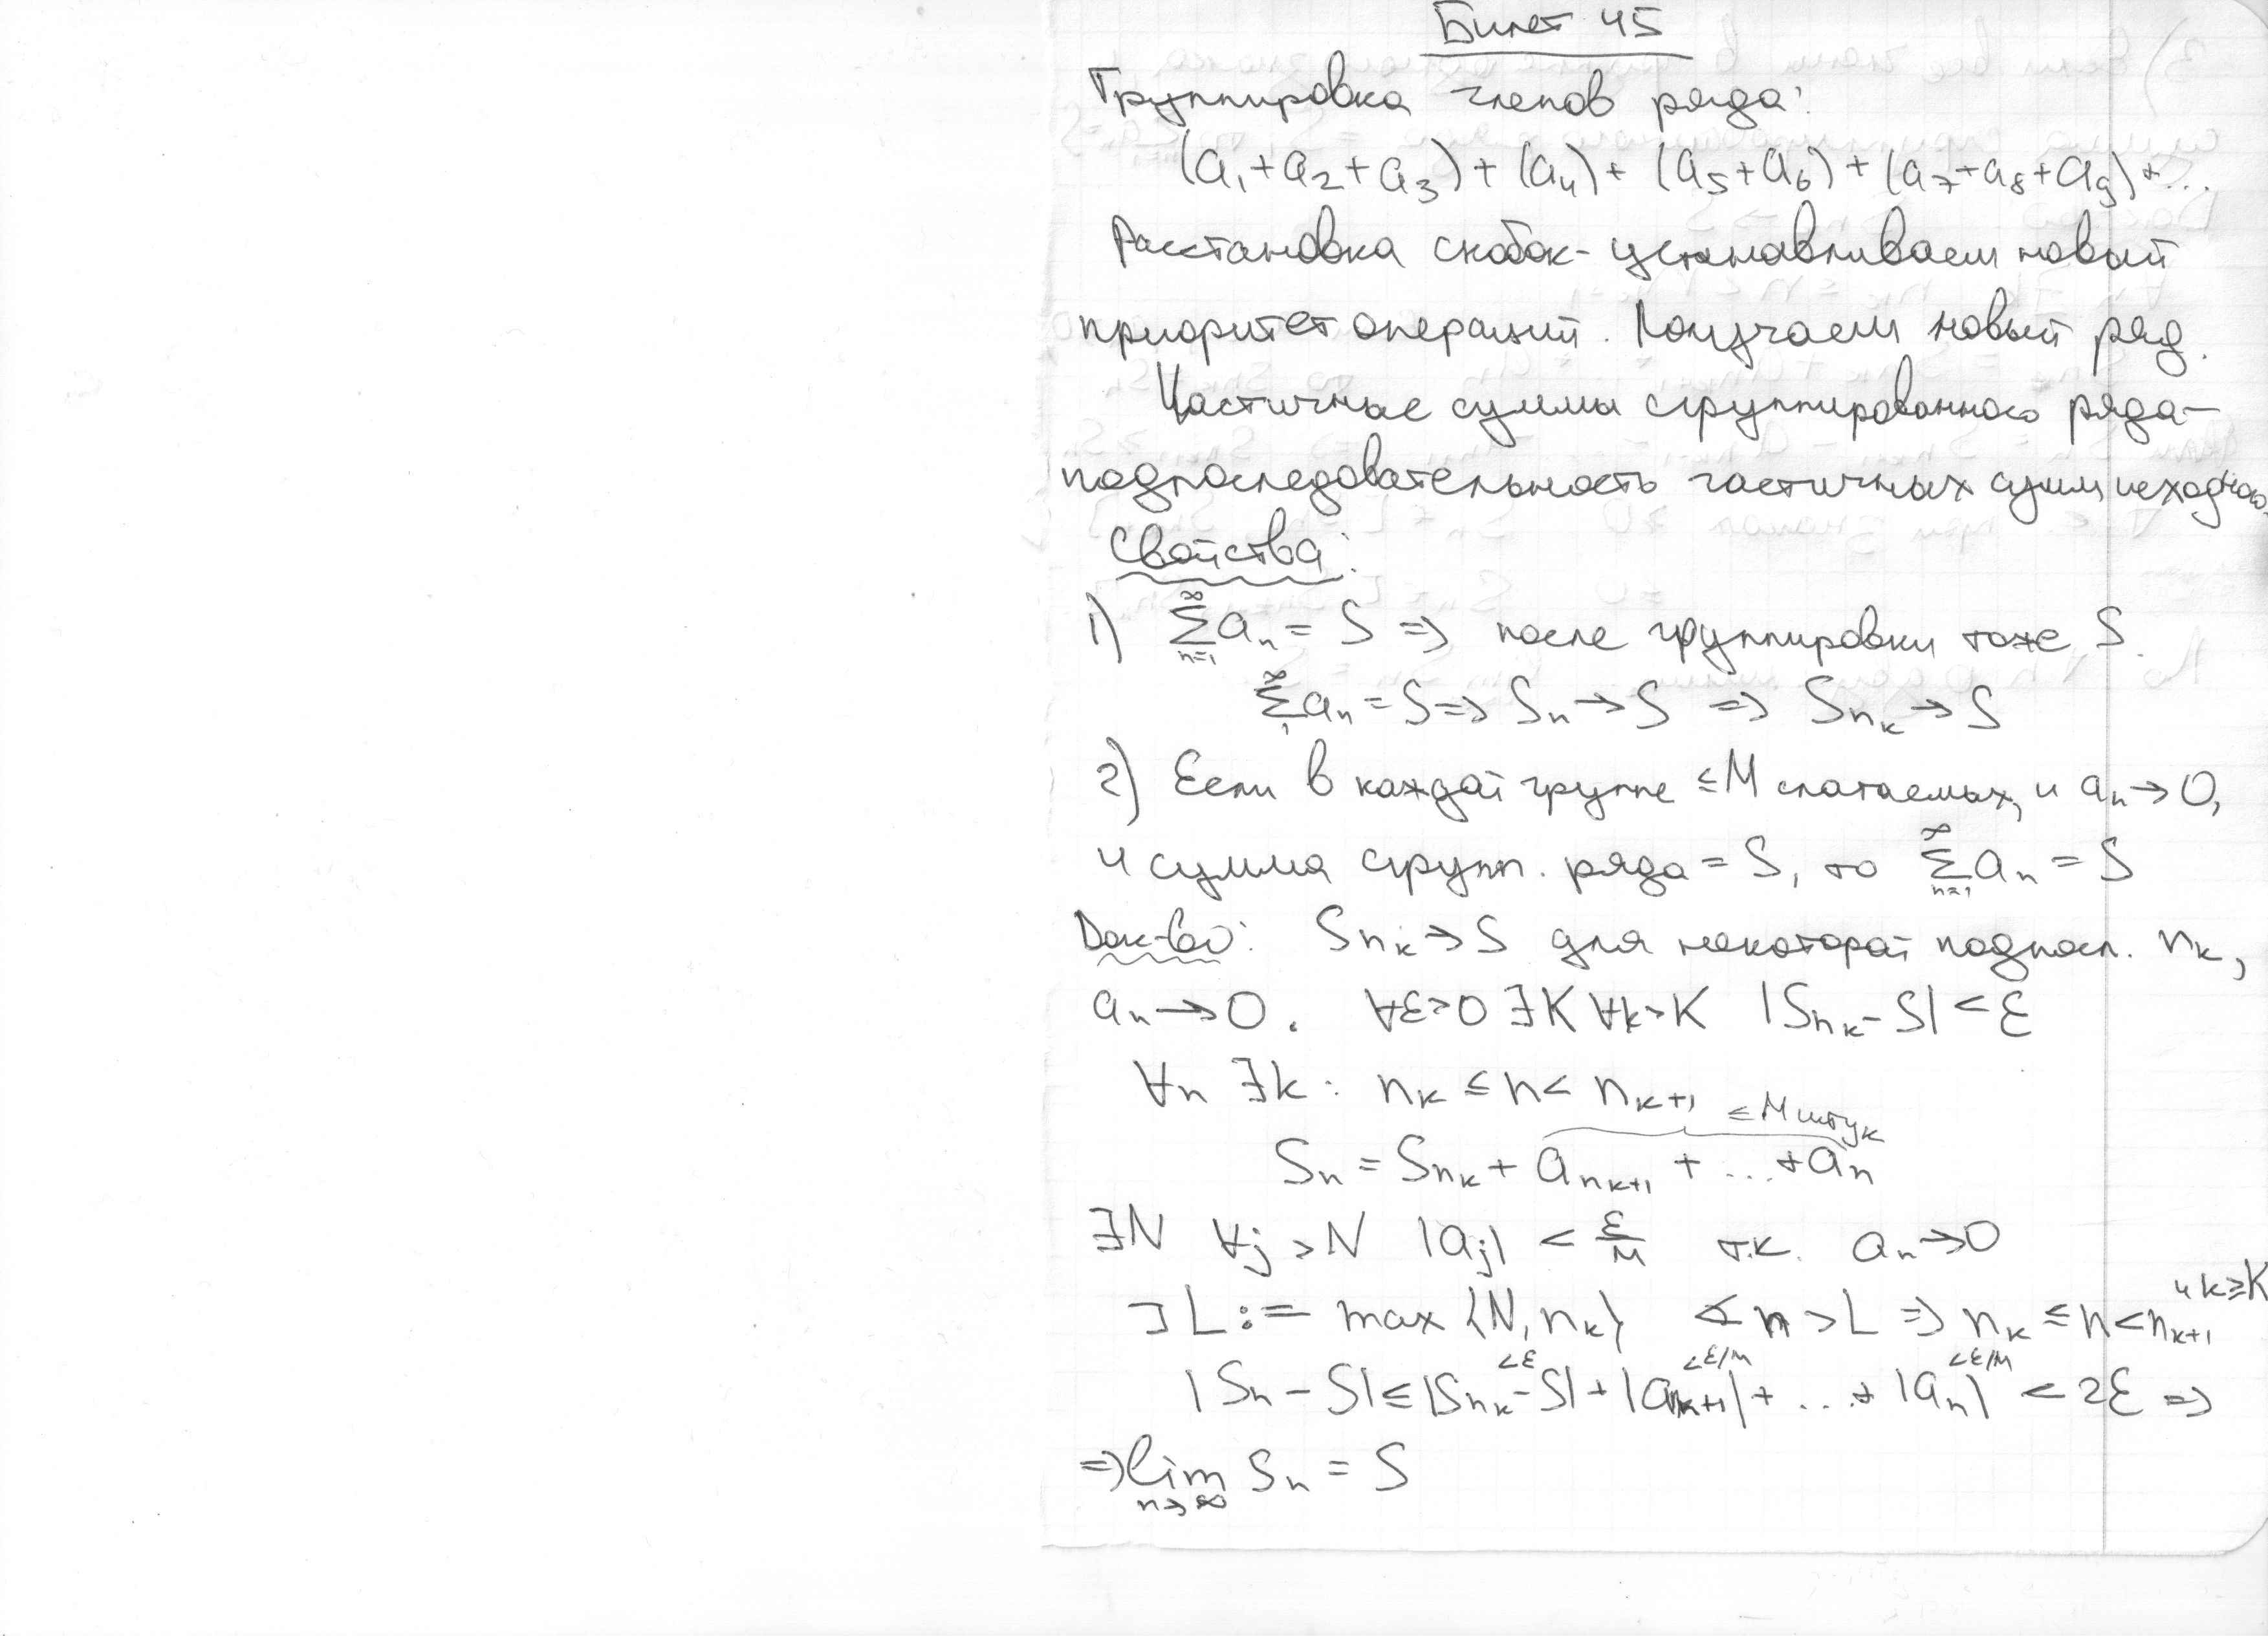 Билет 45
Группировка членов ряда:
(a₁+a₂+a₃)+(a₄)+(a₅+a₆)+(a₇+a₈+a₉)+...
Расстановка скобок - устанавливаем новый
приоритет операций. Получаем новый ряд.
Частичные суммы сгруппированного ряда -
подпоследовательность частичных сумм исходного.
Свойства:
1) ∑_{n=1}^{∞} aₙ = S ⇒ после группировки тоже S.
∑_{1}^{∞} aₙ = S ⇒ Sₙ → S ⇒ S_{n_k} → S
2) Если в каждой группе ≤ M слагаемых, и aₙ → 0,
и сумма групп. ряда = S, то ∑_{n=1}^{∞} aₙ = S
Док-во: S_{n_k} → S для некоторой подпосл. n_k,
aₙ → 0. ∀ε>0 ∃K ∀k>K |S_{n_k} - S| < ε
∀n ∃k : n_k ≤ n < n_{k+1} ≤ M штук
Sₙ = S_{n_k} + a_{n_{k+1}} + ... + aₙ
∃N ∀j > N |a_j| < ε/M т.к. aₙ → 0
∃ L := max {N, n_k} ∢ n > L ⇒ n_k ≤ n < n_{k+1} и k ≥ K
<ε <ε/M <ε/M
|Sₙ - S| ≤ |S_{n_k} - S| + |a_{n_{k+1}}| + ... + |aₙ| < 2ε ⇒
⇒ lim_{n→∞} Sₙ = S